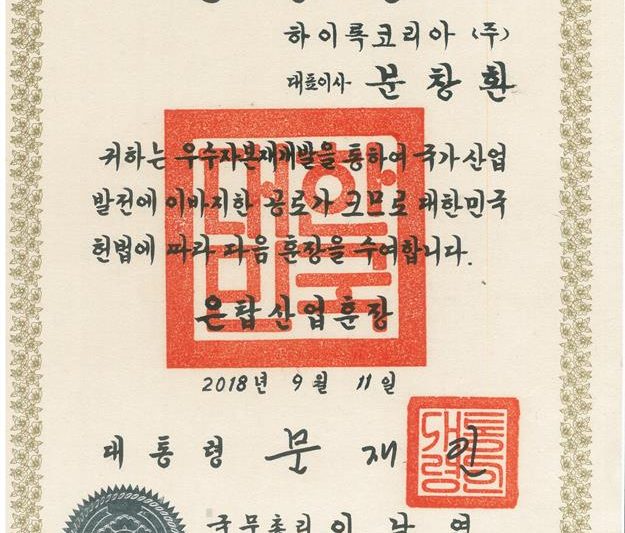 하이록코리아 (주)
대표이사 문창환
귀하는 우수자본재개발을 통하여 국가산업
발전에 이바지한 공로가 크므로 대한민국
헌법에 따라 다음 훈장을 수여합니다.
대한
민국
은탑산업훈장
2018년 9월 11일
대통령 문재인
국무총리 이낙연